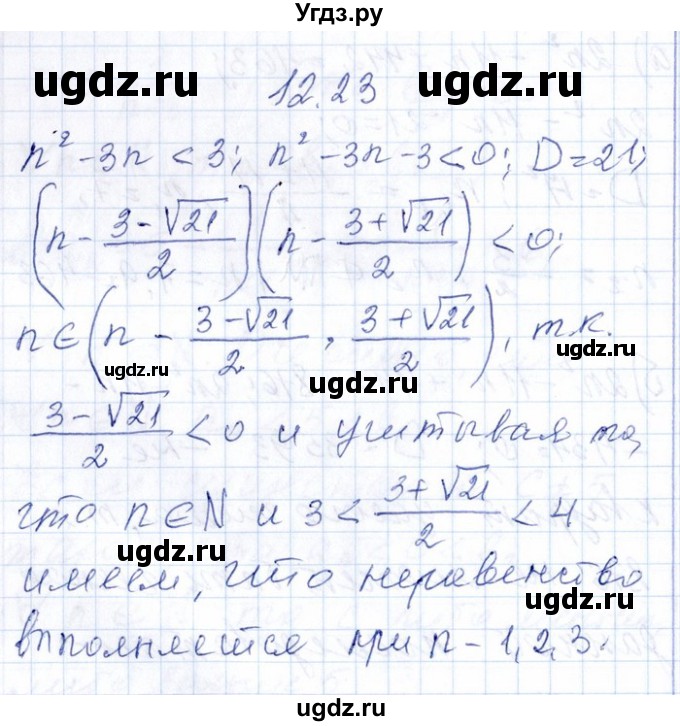 Угдз.ру
ugdz.ru ugdz.ru
12.23
n² - 3n < 3; n² - 3n - 3 < 0; D = 21;
(n - (3 - √21)/2)(n - (3 + √21)/2) < 0;
n ∈ (n - (3 - √21)/2, (3 + √21)/2), т.к.
ugdz.ru ugdz.ru
(3 - √21)/2 < 0 и учитывая то,
что n ∈ N и 3 < (3 + √21)/2 < 4
ugdz.ru ugdz.ru
имеем, что неравенство
выполняется при n - 1, 2, 3.
ugdz.ru